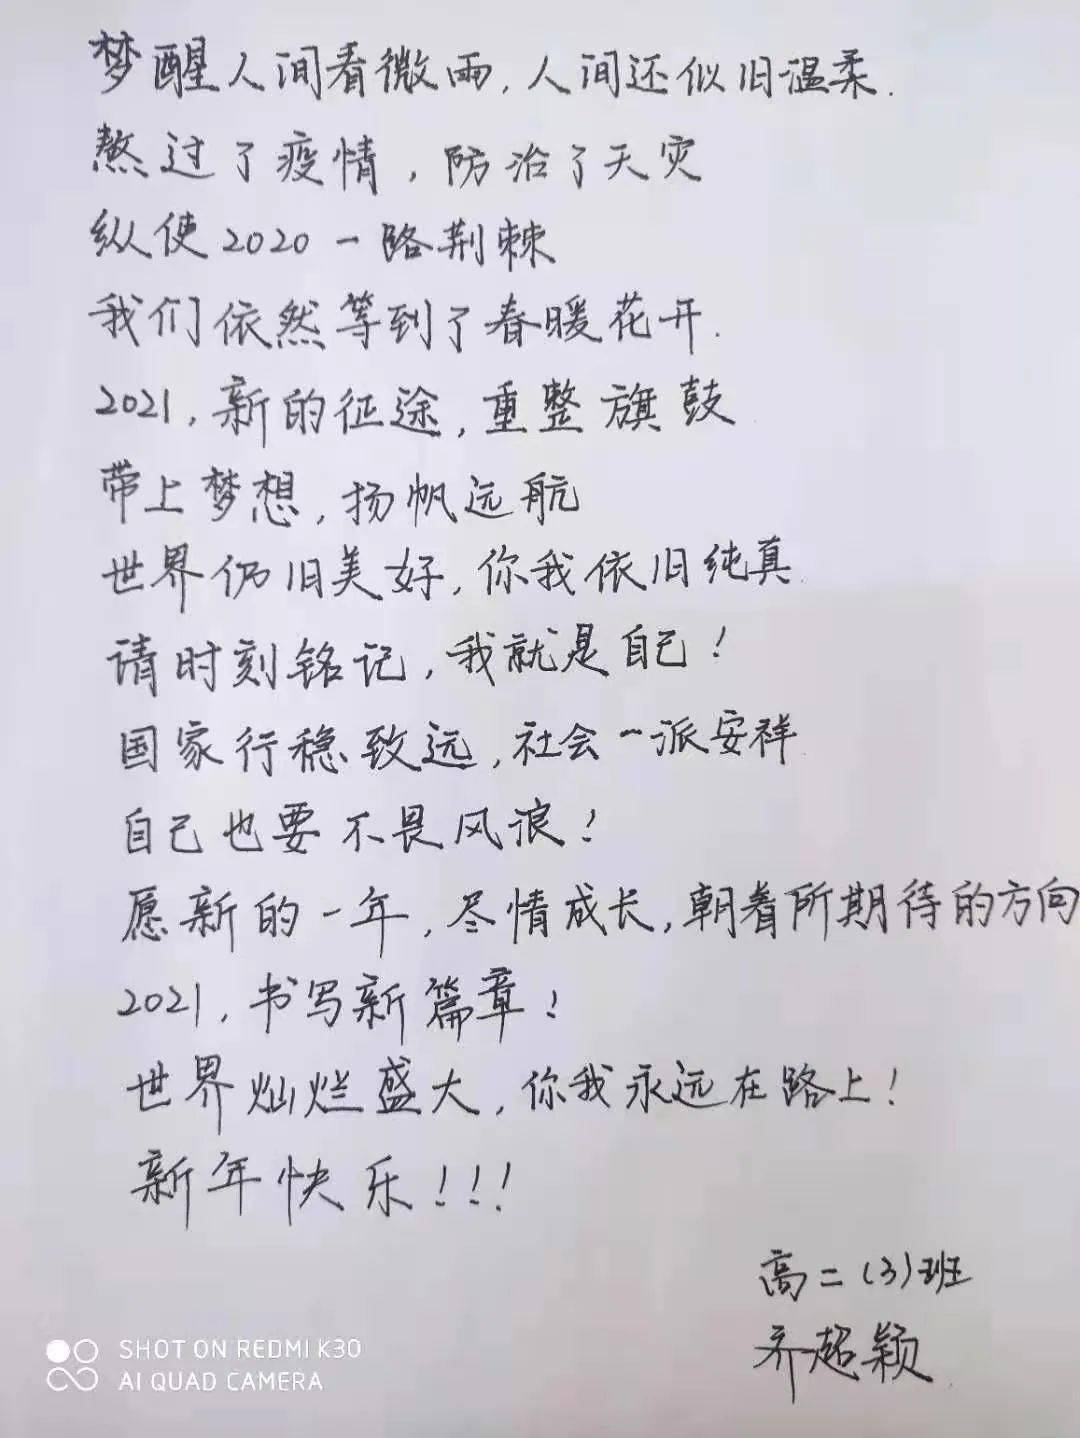 梦醒人间看微雨，人间还似旧温柔.
熬过了疫情，防治了天灾
纵使2020一路荆棘
我们依然等到了春暖花开.
2021，新的征途，重整旗鼓
带上梦想，扬帆远航
世界仍旧美好，你我依旧纯真.
请时刻铭记，我就是自己！
国家行稳致远，社会一派安祥.
自己也要不畏风浪！
愿新的一年，尽情成长，朝着所期待的方向
2021，书写新篇章！
世界灿烂盛大，你我永远在路上！
新年快乐！！！
高二（3）班
乔超颖
SHOT ON REDMI K30
AI QUAD CAMERA